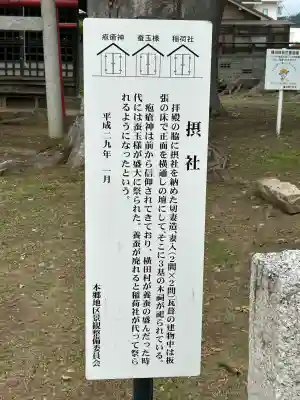 疱瘡神　蚕玉様　稲荷社
摂社
拝殿の脇に摂社を納めた切妻造、妻入(2間×2間)瓦葺の建物中は板
張の床で正面を横通しの壇にして、そこに3基の木祠が祀られている。
疱瘡神は前から信仰されてきており、横田村が養蚕の盛んだった時
代には蚕玉様が盛大に祭られた。養蚕が廃れると稲荷社が代って祭ら
れるようになったという。
平成二九年　一月
本郷地区景観整備委員会